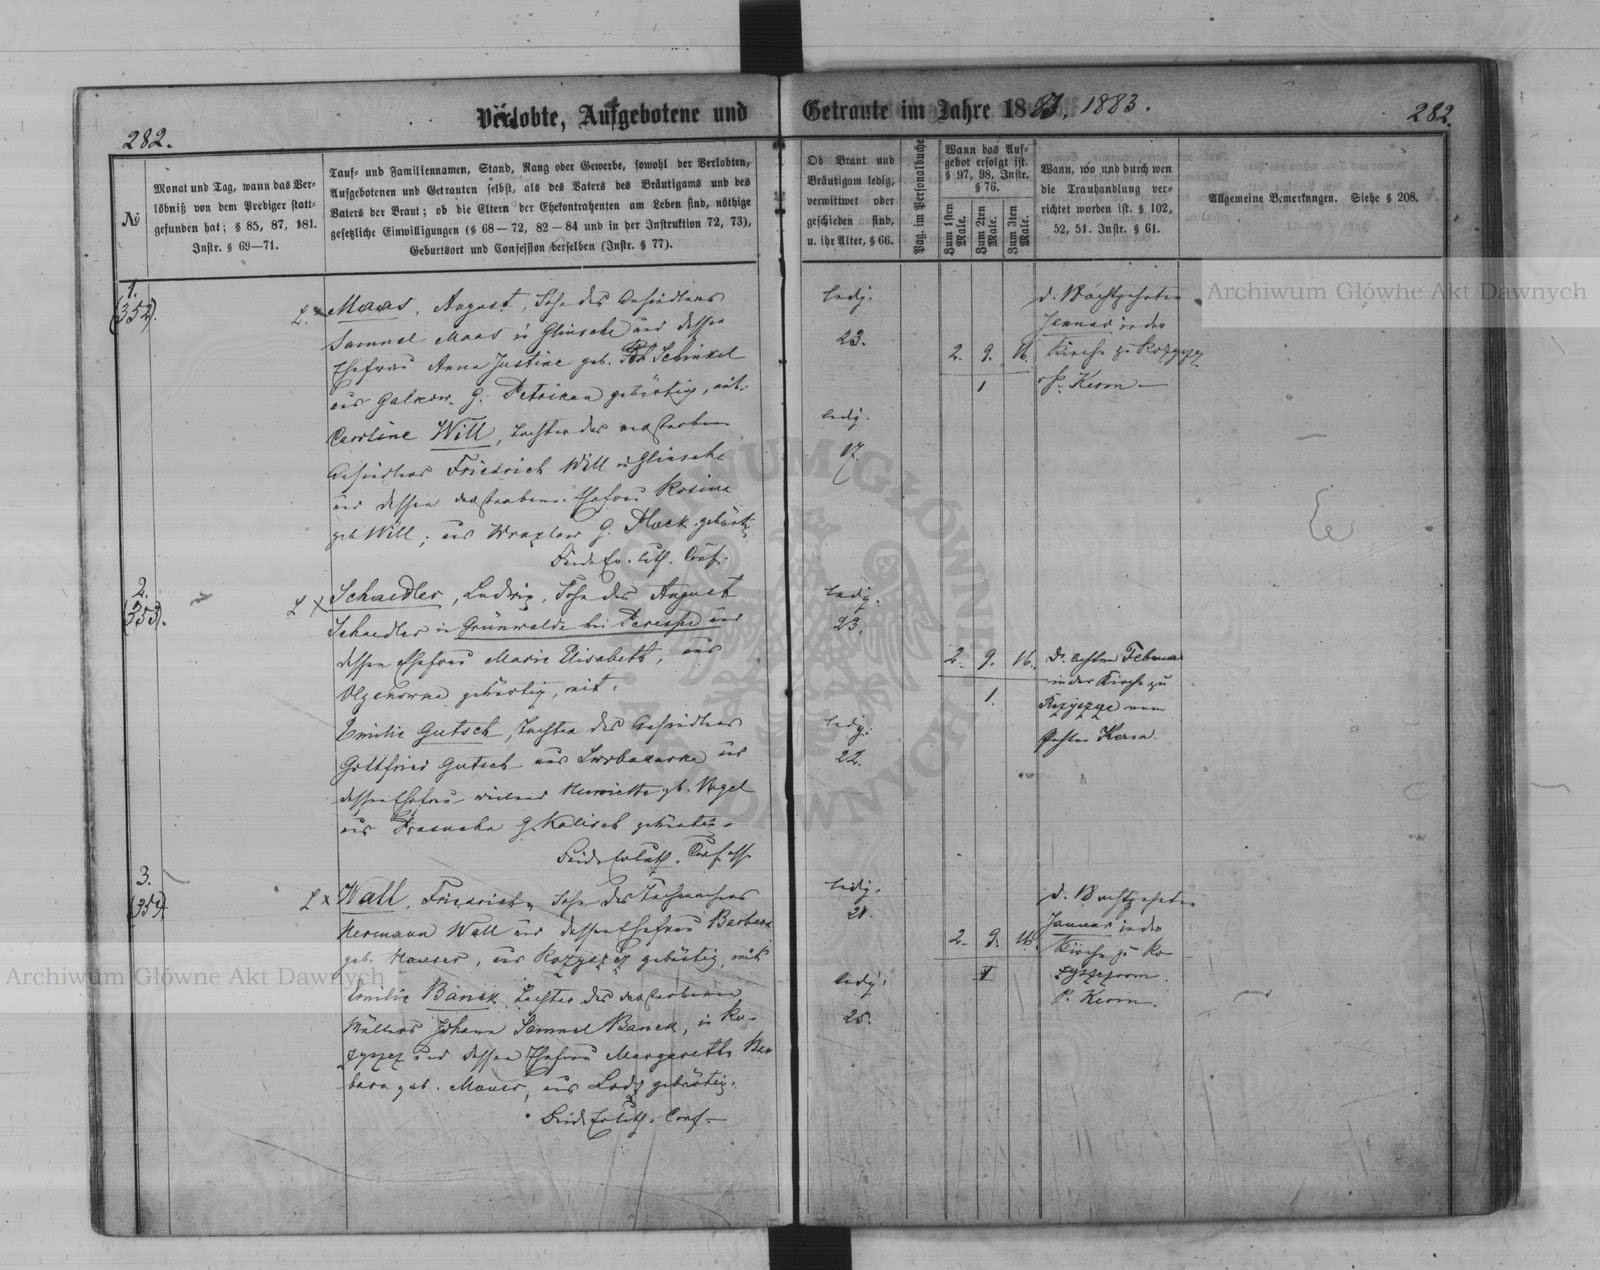 Verlobte, Aufgebotene und Getraute im Jahre 1883.
282.
282.
№
Monat und Tag, wann das Ver-
löbniß von dem Prediger statt-
gefunden hat; § 85, 87, 181.
Instr. § 69—71.
Tauf- und Familiennamen, Stand, Rang oder Gewerbe, sowohl der Verlobten,
Aufgebotenen und Getrauten selbst, als des Vaters des Bräutigams und des
Vaters der Braut; ob die Eltern der Ehekontrahenten am Leben sind, nöthige
gesetzliche Einwilligungen (§ 68—72, 82—84 und in der Instruktion 72, 73),
Geburtsort und Confession derselben (Instr. § 77).
Ob Braut und
Bräutigam ledig,
verwittwet oder
geschieden sind,
u. ihr Alter, § 66.
Pag. im Personalbuche
Wann das Auf-
gebot erfolgt ist.
§ 97, 98, Instr.
§ 76.
Zum 1sten Male.
Zum 2ten Male.
Zum 3ten Male.
Wann, wo und durch wen
die Trauhandlung ver-
richtet worden ist. § 102,
52, 51. Instr. § 61.
Allgemeine Bemerkungen. Siehe § 208.
1.
(352).
Maas, August, Sohn des Ansiedlers
Samuel Maas in Glinsche und dessen
Ehefrau Anna Justine geb. Schinkel
aus Galkow G. Petrikau gebürtig, mit
Caroline Will, Tochter des verstorbenen
Ansiedlers Friedrich Will in Glinsche
und dessen verstorbenen Ehefrau Rosina
geb Will, aus G. Plock gebürtig
Beide Ev. luth. Conf.
ledig.
23.
ledig.
17.
2. 9. 16.
1
d. 18 achtzehnten
Januar in der
Kirche zu
P. Kerm
2.
(353).
Schaedler, Ludwig, Sohn des August
Schaedler in Grünwalde bei und
dessen Ehefrau Marie Elisabeth, aus
gebürtig, mit
Emilie Gutsch, Tochter des Ansiedlers
Gottfried Gutsch aus und
dessen Ehefrau Henriette geb. Vogel
aus G. Kalisch gebürtig.
Beide Ev luth. Conf
ledig.
23.
ledig.
22.
2. 9. 16.
1.
D. achten Februar
in der Kirche zu
vom
Pastor Kerm.
3.
(354)
Wall, Friedrich, Sohn des Tuchmachers
Hermann Wall und dessen Ehefrau Barbara
geb. Hauser, aus Rozyszcz gebürtig, mit
Emilie Banek, Tochter des verstorbenen
Müllers Johann Samuel Banek, in Ro-
zyszcz und dessen Ehefrau Margareth Bar
bara geb. Mauer, aus Lodz gebürtig.
Beide Ev luth. Conf
ledig.
21.
ledig.
25.
2. 9. 16.
1
d. 18 achtzehnten
Januar in der
Kirche zu Ro-
zyszcz vom
P. Kerm.
Archiwum Główne Akt Dawnych
Archiwum Główne Akt Dawnych
ARCHIWUM GŁÓWNE AKT DAWNYCH